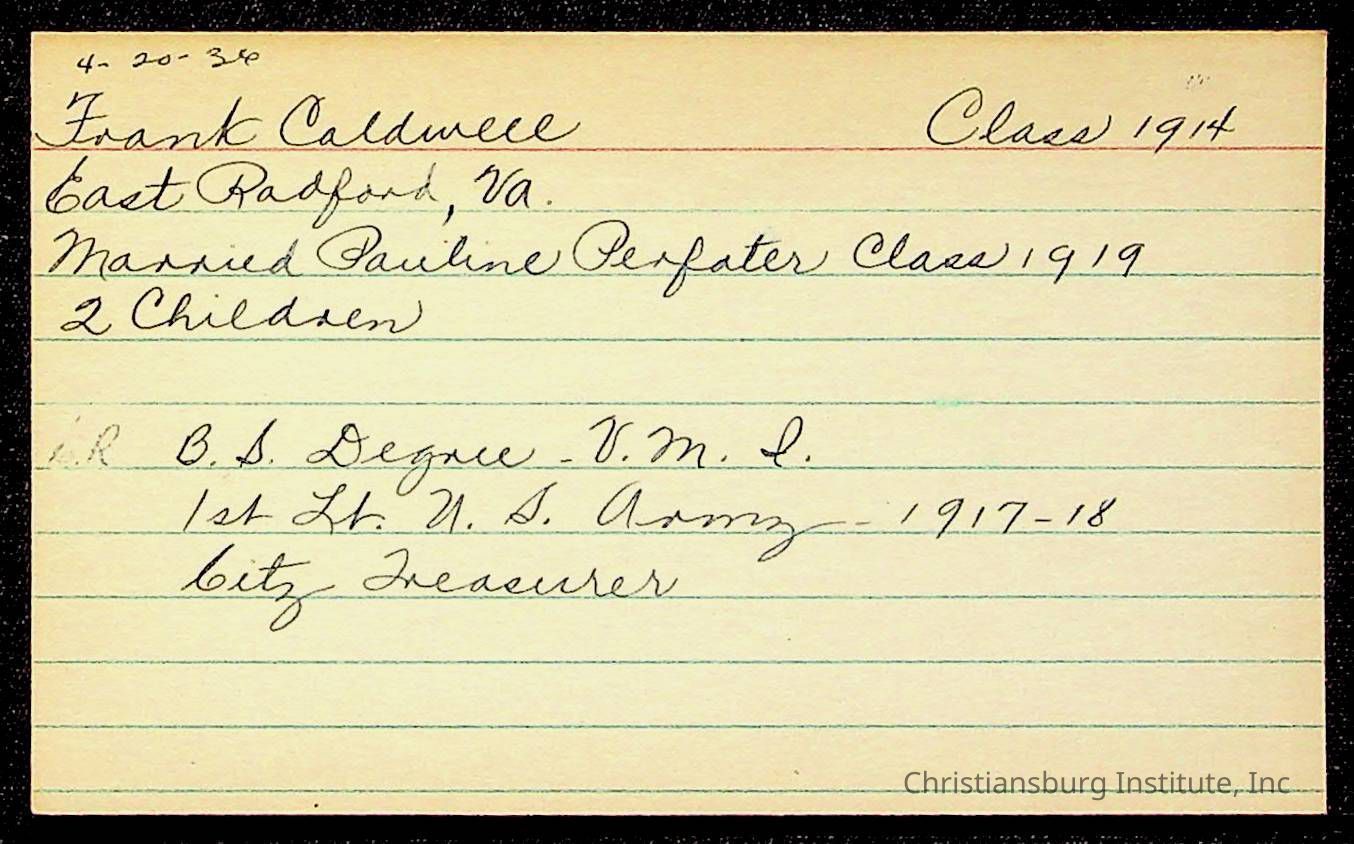 4-20-36
Frank Caldwell Class 1914
East Radford, Va.
Married Pauline Perfater Class 1919
2 Children
B. S. Degree - V. M. I.
1st Lt. U. S. Army - 1917-18
City Treasurer
Christiansburg Institute, Inc